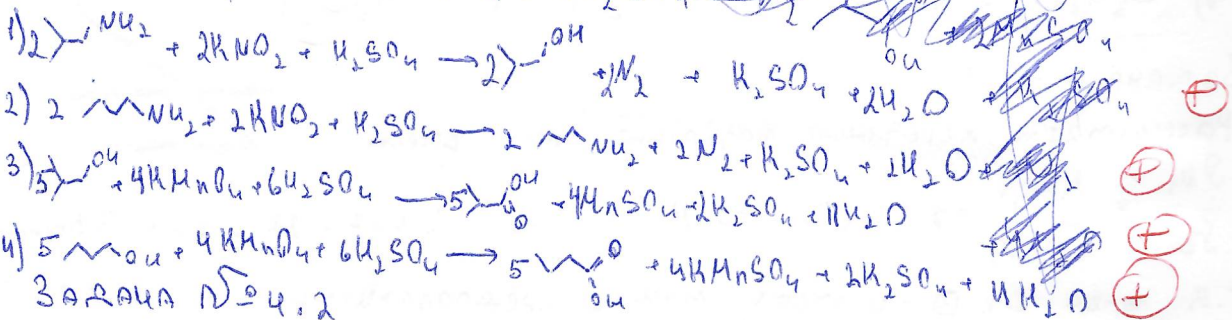 1) 2 NH₂ + 2KNO₂ + H₂SO₄ → 2 OH + 2N₂ + K₂SO₄ + 2H₂O
2) 2 NH₂ + 2KNO₂ + H₂SO₄ — 2 NH₂ + 2N₂ + K₂SO₄ + 2H₂O
3) 5 OH + 4KMnO₄ + 6H₂SO₄ → 5 OH O + 4MnSO₄ + 2K₂SO₄ + 11H₂O
4) 5 OH + 4KMnO₄ + 6H₂SO₄ → 5 O OH + 4KMnSO₄ + 2K₂SO₄ + 11H₂O
ЗАДАЧА №4.2